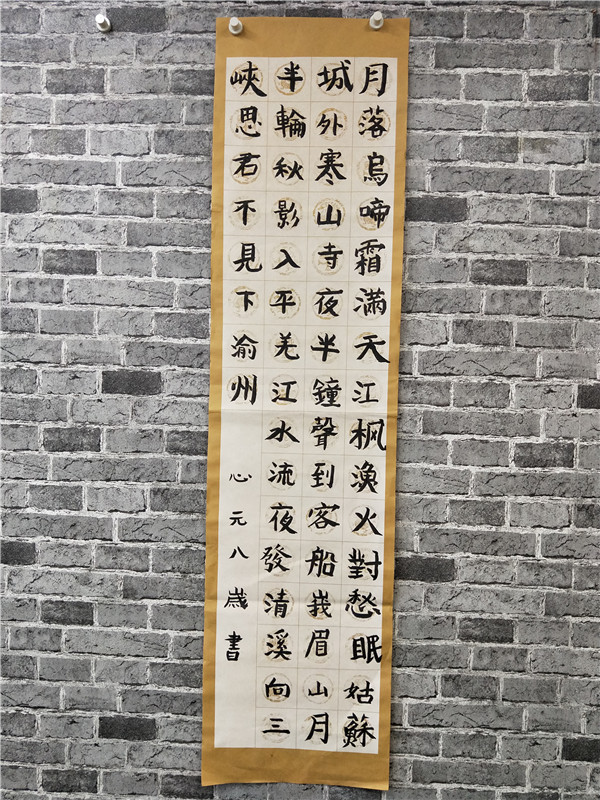 月落烏啼霜滿天江枫漁火對愁眠姑蘇
城外寒山寺夜半鐘聲到客船峩眉山月
半輪秋影入平羌江水流夜發清溪向三
峽思君不見下渝州
心元八歲書